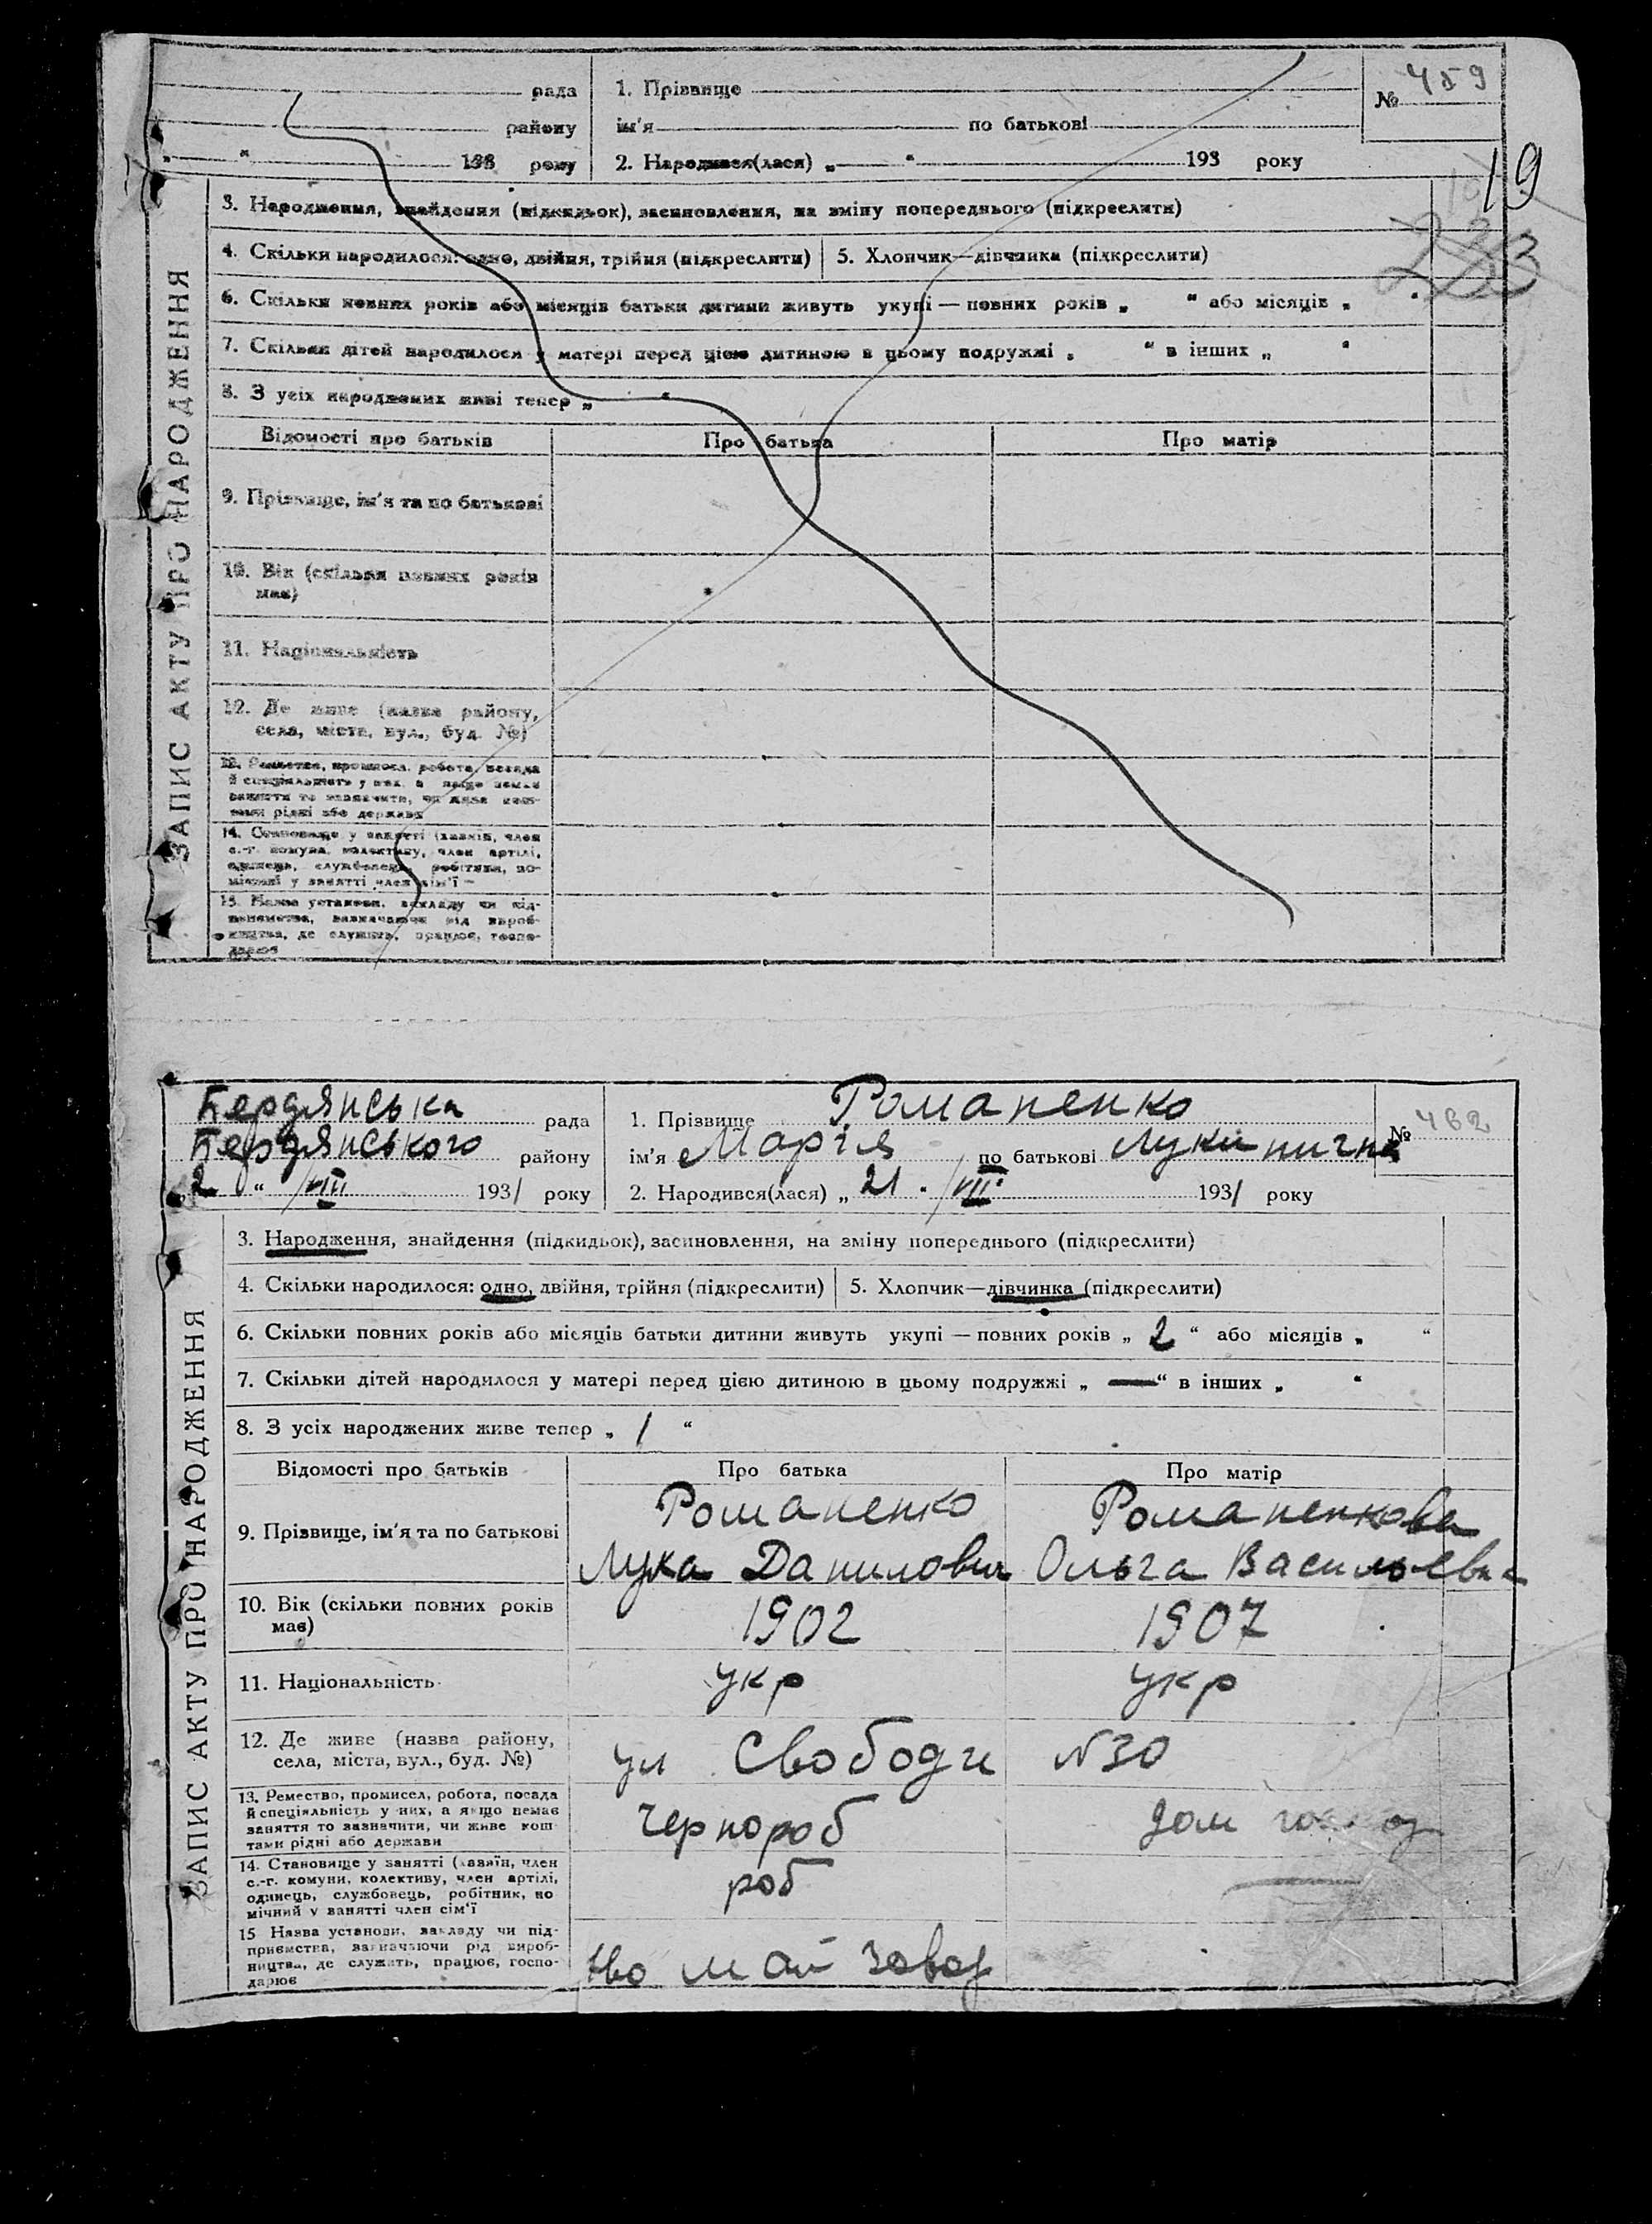 рада
району
" 193 року
1. Прізвище
ім'я по батькові
2. Народився(лася) „ " 193 року
№ 459
19
3. Народження, знайдення (підкидьок), засиновлення, на зміну попереднього (підкреслити)
4. Скільки народилося: одно, двійня, трійня (підкреслити)
5. Хлопчик—дівчинка (підкреслити)
6. Скільки повних років або місяців батьки дитини живуть укупі — повних років „ " або місяців „ "
7. Скільки дітей народилося у матері перед цією дитиною в цьому подружжі „ " в інших „ "
8. З усіх народжених живі тепер „ "
Відомості про батьків
Про батька
Про матір
9. Прізвище, ім'я та по батькові
10. Вік (скільки повних років
має)
11. Національність
12. Де живе (назва району,
села, міста, вул., буд. №)
ЗАПИС АКТУ ПРО НАРОДЖЕННЯ
Бердянська рада
Бердянського району
2 " /VIII 1931 року
1. Прізвище Романенко
ім'я Марія по батькові Лукинична
2. Народився(лася) „ 21 " /VII 1931 року
№ 462
3. Народження, знайдення (підкидьок), засиновлення, на зміну попереднього (підкреслити)
4. Скільки народилося: одно, двійня, трійня (підкреслити)
5. Хлопчик—дівчинка (підкреслити)
6. Скільки повних років або місяців батьки дитини живуть укупі — повних років „ 2 " або місяців „ "
7. Скільки дітей народилося у матері перед цією дитиною в цьому подружжі „ — " в інших „ "
8. З усіх народжених живе тепер „ 1 "
Відомості про батьків
Про батька
Про матір
9. Прізвище, ім'я та по батькові
Романенко
Лука Данилович
Романенкова
Ольга Васильевна
10. Вік (скільки повних років
має)
1902
1907
11. Національність
укр
укр
12. Де живе (назва району,
села, міста, вул., буд. №)
ул Свободи N30
13. Ремество, промисел, робота, посада
й спеціяльність у них, а якщо немає
заняття то зазначити, чи живе кош-
тами рідні або держави
Чернороб
дом
14. Становище у занятті (хазяїн, член
с.-г. комуни, колективу, член артілі,
одинець, службовець, робітник, по
мічний у занятті член сім'ї
роб
—
15 Назва установи, закладу чи під-
приємства, зазначаючи рід вироб-
ництва, де служить, працює, госпо-
дарює
май завод
ЗАПИС АКТУ ПРО НАРОДЖЕННЯ